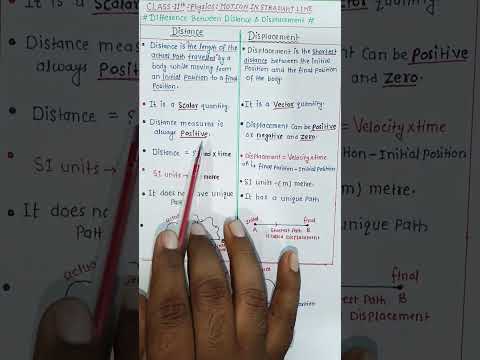 CLASS-11th-Physics: MOTION IN STRAIGHT LINE
# Difference Between Distance & Displacement #
Distance
• Distance is the length of the
actual Path travelled by a
body while moving from
an initial Position to a final
Position.
• It is a Scalar quantity.
• Distance measures is
always Positive.
• Distance = x time
• SI units → metre
• It does ve unique
Displacement
• Displacement is the Shortest
distance between the
initial Position and the final Position
of the body.
• It is a Vector quantity.
• Displacement can be Positive
or negative and zero.
• Displacement = Velocity x time
final Position - Initial Position
• SI unit - (m) metre.
• It has a unique Path
initial
final
A
B
Shortest Path
Displacement
• It is a Scalar
Distance measu
always Positive
Distance =
SI units
It does no
Path
actua
Positive
and Zero.
Velocity x time
- Initial Position
metre.
nique Path
final
est Path B
Displacement